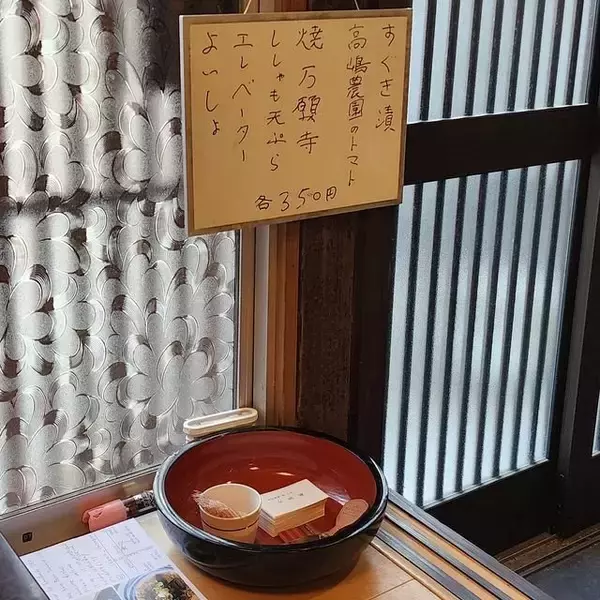 すぐき漬
高嶋農園のトマト
焼万願寺
ししゃも天ぷら
エレベーター
よいしょ
各350円